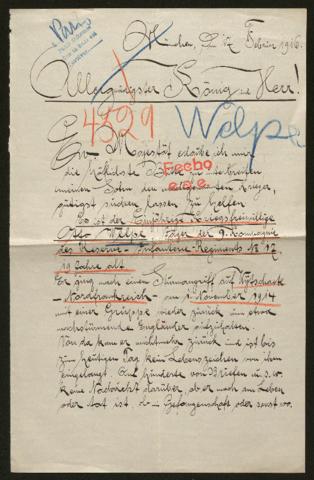 München, 17 Februar 1916.
Allergnädigster König u. Herr!
4529
Welpe
Ew. Majestät erlaube ich mir
die höflichste Bitte zu unterbreiten
meinen Sohn den unbekannten Krieger,
Fecho
e.o.e.
gütigst suchen lassen zu helfen
Es ist der Einjährig-Kriegsfreiwillige
Otto Welpe Jäger der 9. Kompagnie
des Reserve-Infanterie-Regiments No 17
19 Jahre alt
Er ging nach einem Sturmangriff auf Wytschaete
– Nordfrankreich – am 1. November 1914
mit einer Gruppe wieder zurück um etwa
nachstürmende Engländer aufzuhalten.
Von da kam er nicht mehr zurück und ist bis
zum heutigen Tag kein Lebenszeichen von ihm
eingelangt. Auf hunderte von Briefen u.s.w.
keine Nachricht darüber, ob er noch am Leben
oder tot ist, ob in Gefangenschaft oder sonst wo.